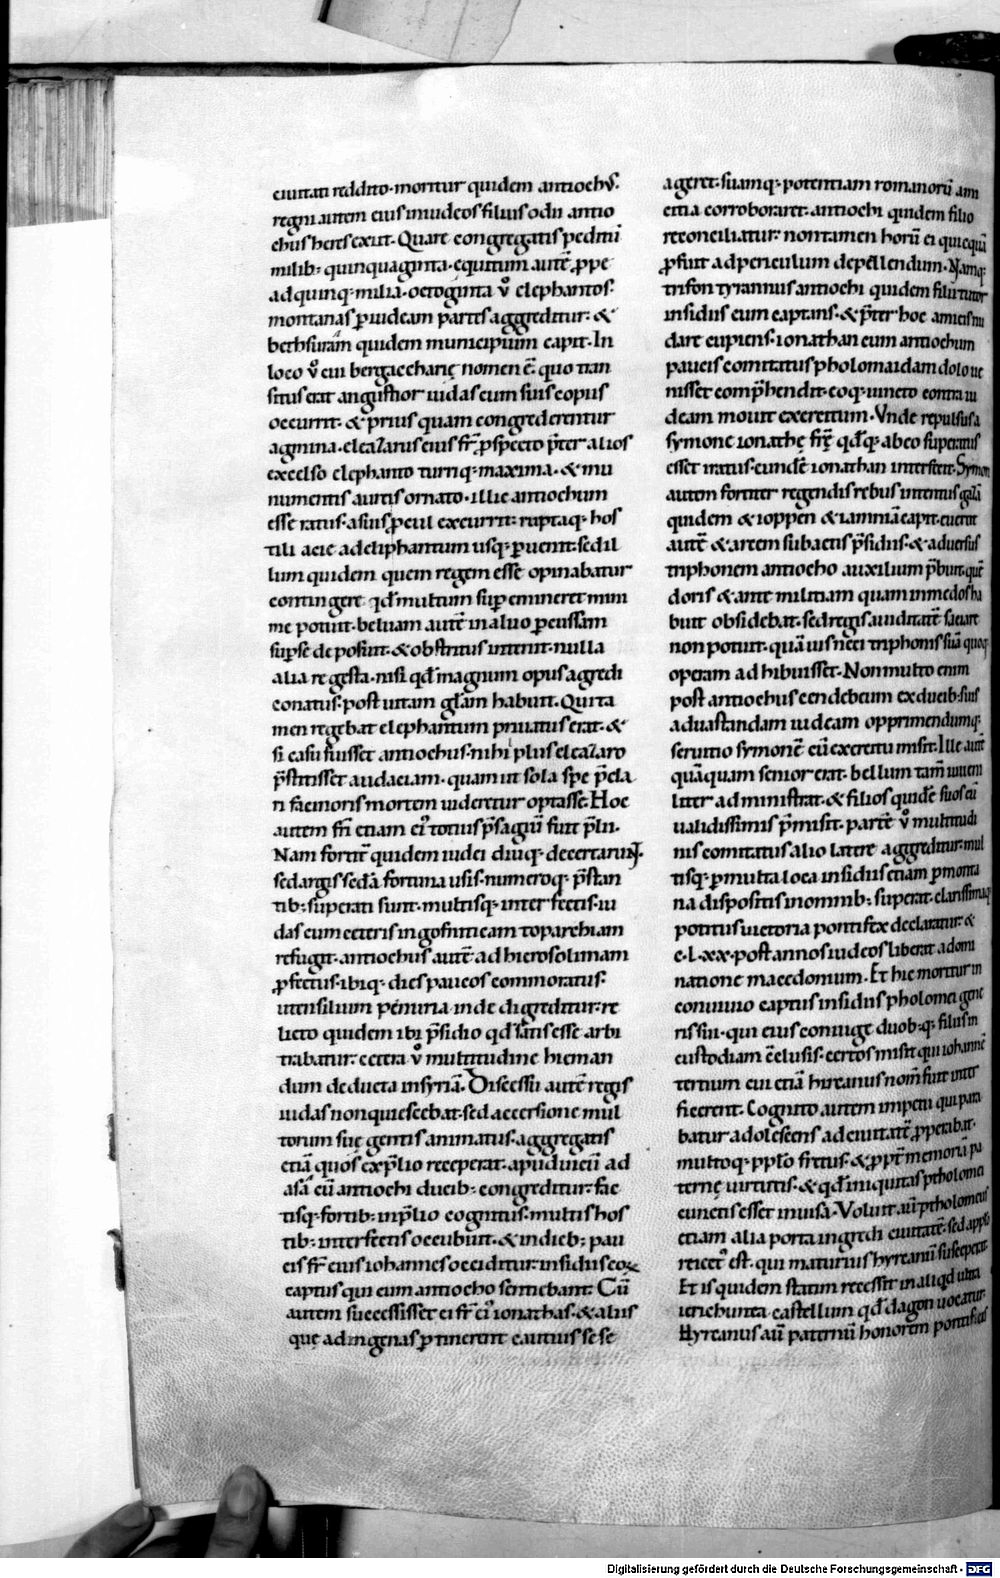 ciuitati reddito·moritur quidem antiochꝰ.
regni autem eius inuidieos filius odii antio
chus heres exiit. Quare congregatis peditū
milib; quinquaginta·equitum autē ꝓpe
ad quinq; milia·octoginta v̊ elephantos·
montanas ꝑ iudeam partes aggreditur· &
bethsuram quidem municipium capit. In
loco v̊ cui bergaccharię nomen ē· quo tran
situs erat angustior iudas cum suis copiis
occurrit· & prius quam congrederentur
agmina·eleazarus eius fr̄ ꝓspecto p̄ter alios
excelso elephanto turriq; maxima·& mu
numentis aureis ornato·illic antiochum
esse ratus·a suis ꝓcul excurrit·ruptaq; hos
tili acie ad eliphantum usq; ꝑuenit·sed il
lum quidem quem regem esse opinabatur
contingere qd̄ multum sup̄ emineret mini
me potuit·beluam autē in aluo ꝑcussam
sup̄ se deposuit·& obstritus interiit·nulla
alia re gesta·nisi qd̄ magnum opus agredi
conatus·post uitam gl̄am habuit. Qui ta
men regebat elephantum priuatus erat·&
si casu fuisset antiochus·nihil plus eleazaro
p̄stitisset audaciam·quam ut sola spe p̄cla
ri facinoris mortem uideretur optasse. Hoc
autem fr̄i etiam eiꝰ totius p̄sagiū fuit p̄lii·
Nam fortit̄ quidem iudei diuq; decertarunt·
sed a regiis secd̄a fortuna usis·numeroq; p̄stan
tib; superati sunt·multisq; interfectis·iu
das cum ceteris in gofniticam toparchiam
refugit·antiochus autē ad hierosolimam
ꝓfectus·ibiq; dies paucos commoratus·
utensilium penuria inde digreditur·re
licto quidem ibi p̄sidio qd̄ satis esse arbi
trabatur·cetera v̊ multitudine hieman
dum deducta in syriā. Discessu autē regis
iudas non quiescebat·sed accersione mul
torum suę gentis animatus·aggregatis
etiā quos ex p̄lio receperat·apud uicū ad
asā cū antiochi ducib; congreditur·fac
tisq; fortib; in p̄lio cognitus·multis hos
tib; interfectis occubuit·& in dieb; pau
cis fr̄ eius iohannes occiditur·insidiis eoꝝ
captus qui cum antiocho sentiebant. Cū
autem successisset ei fr̄ eiꝰ ionathas·& aliis
que ad ingenas ꝑtinerent cautius sese
ageret·suamq; potentiam romanorū ami
citia corroboraret·antiochi quidem filio
reconciliatur·non tamen horū ei quicquā
ꝓfuit ad periculum depellendum. Namq;
trifon tyrannus antiochi quidem filii tutor
insidiis eum captans·& p̄ter hoc amicis nu
dare cupiens·ionathan cum antiochum
paucis comitatus pholomaidam dolo ue
nisset comp̄hendit·eoq; uincto contra iu
deam mouit exercitum. Vnde repulsus a
symone ionathę fr̄e qd̄q; ab eo superatus
esset iratus·eundē ionathan interfecit. Symon
autem fortiter regendis rebus intentus gazā
quidem & ioppen & iamniā capit·euertit
autē & arcem subactis p̄sidiis·& aduersus
triphonem antiocho auxilium p̄buit·quē
doris & ante militiam quam in medos ha
buit obsidebat·sed regis auiditatē saciare
non potuit·quāuis neci triphonis suā quoq;
operam adhibuisset. Non multo enim
post antiochus cendebeum ex ducib; suis
ad uastandam iudeam opprimendumq;
seruitio symonē cū exercitu misit. Ille autē
quāquam senior erat·bellum tam̄ iuueni
liter administrat·& filios quidē suos cū
ualidissimis p̄misit·partē v̊ multitudi
nis comitatus alio latere aggreditur·mul
tisq; ꝑ multa loca insidiis etiam ꝑ monta
na dispositis in omnib; superat·clarissimaq;
potitus uictoria pontifex declaratur·&
c·l·xx·post annos iudeos liberat a domi
natione macedonum. Et hic moritur in
conuiuio captus insidiis pholomei gene
ris sui·qui eius coniuge duob;q; filiis in
custodiam c̄clusis·certos misit qui iohannē
tertium cui etiā hircanus nom̄ fuit inter
ficerent. Cognito autem impetu qui para
batur adolescens ad ciuitatē ꝓperabat·
multoq; pp̄lo fretus·& ꝓpt̄ memoriā pa
ternę uirtutis·& qd̄ iniquitas ptholomei
cunctis esset inuisa. Voluit aū ptholomeus
etiam alia porta ingredi ciuitatē·sed a pp̄lo
reiectꝰ est·qui maturius hyrcanū susceperat·
Et is quidem statim recessit in aliqd̄ ultra
ierichunta castellum qd̄ dagon uocatur·
Hyrcanus aū paternū honorem pontificis
Digitalisierung gefördert durch die Deutsche Forschungsgemeinschaft - DFG